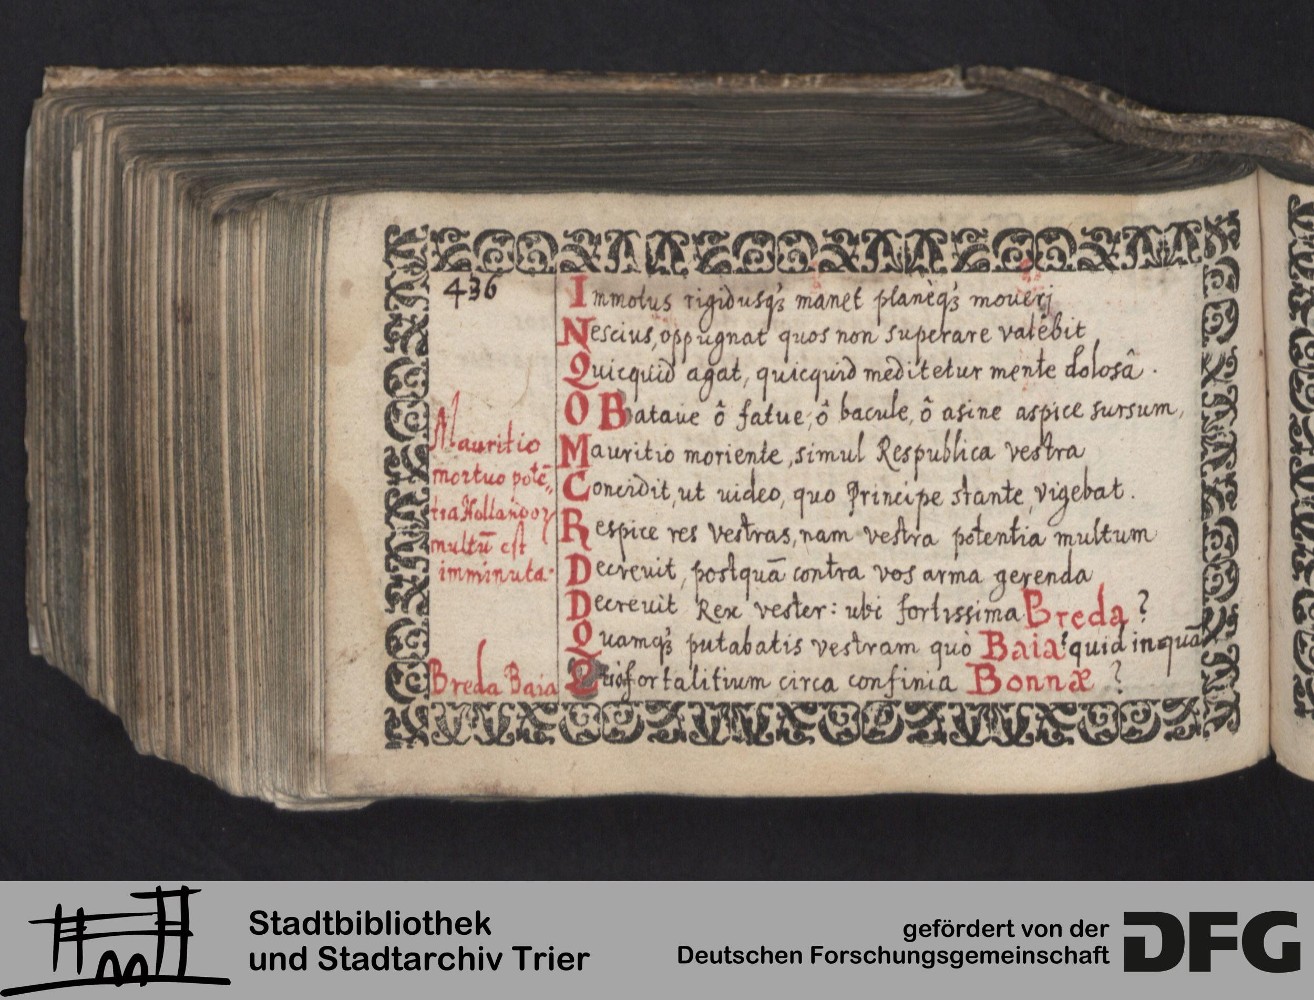 436
Immotus rigidusq3 manet planèq3 moueri
Nescius, oppugnat quos non superare valêbit
Quicquid agat, quicquid meditetur mente dolosâ.
O Bataue ô fatue, ô bacule, ô asine aspice sursum,
Mauritio moriente, simul Respublica vestra
Concidit, ut uideo, quo Principe stante, vigebat.
Respice res vestras, nam vestra potentia multum
Decreuit, postquã contra vos arma gerenda
Decreuit Rex vester: ubi fortissima Breda?
Quamq3 putabatis vestram quò Baia? quid inquã
fortalitium circa confinia Bonnæ?
Mauritio
mortuo potẽ„
tia Hollandoꝝ
multũ est
imminuta.
Breda Baia
Stadtbibliothek
und Stadtarchiv Trier
gefördert von der
Deutschen Forschungsgemeinschaft
DFG